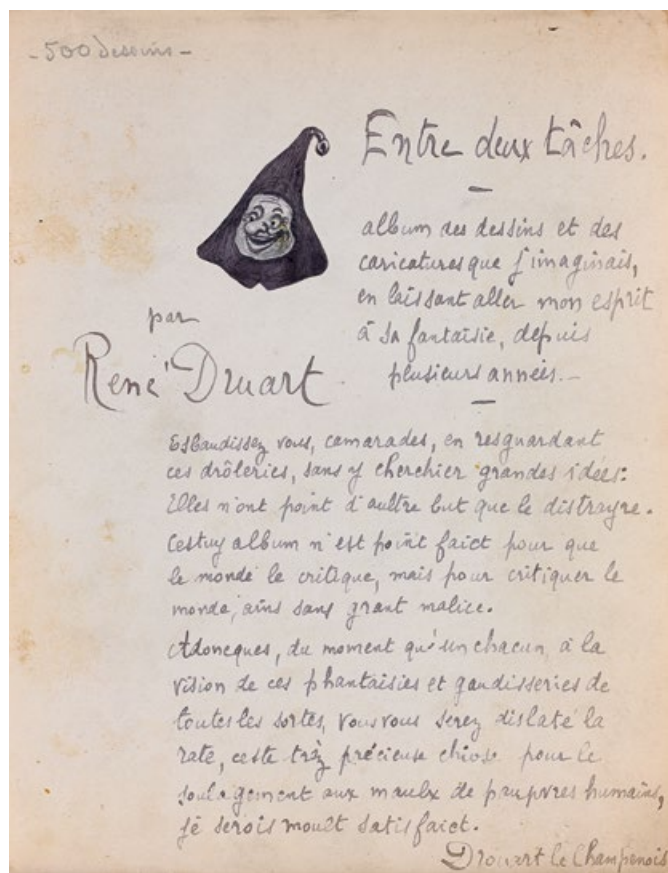 - 500 dessins -
Entre deux tâches.
album des dessins et des
caricatures que j'imaginais,
en laissant aller mon esprit
à sa fantaisie, depuis
plusieurs années. -
par
René Druart
Esbaudissez vous, camarades, en resguardant
ces drôleries, sans y cherchier grandes idées:
Elles n'ont point d'aultre but que le distrayre.
Cestuy album n'est point faict pour que
le monde le critique, mais pour critiquer le
monde, ains sans grant malice.
Adoncques, du moment qu'un chacun, à la
vision de ces phantaisies et gaudisseries de
toutes les sortes, vous vous serez dislaté la
rate, ceste trèz précieuse chose pour le
soulagement aux maulx de paupvres humains,
je serois moult satisfaict.
Drouart le Champenois